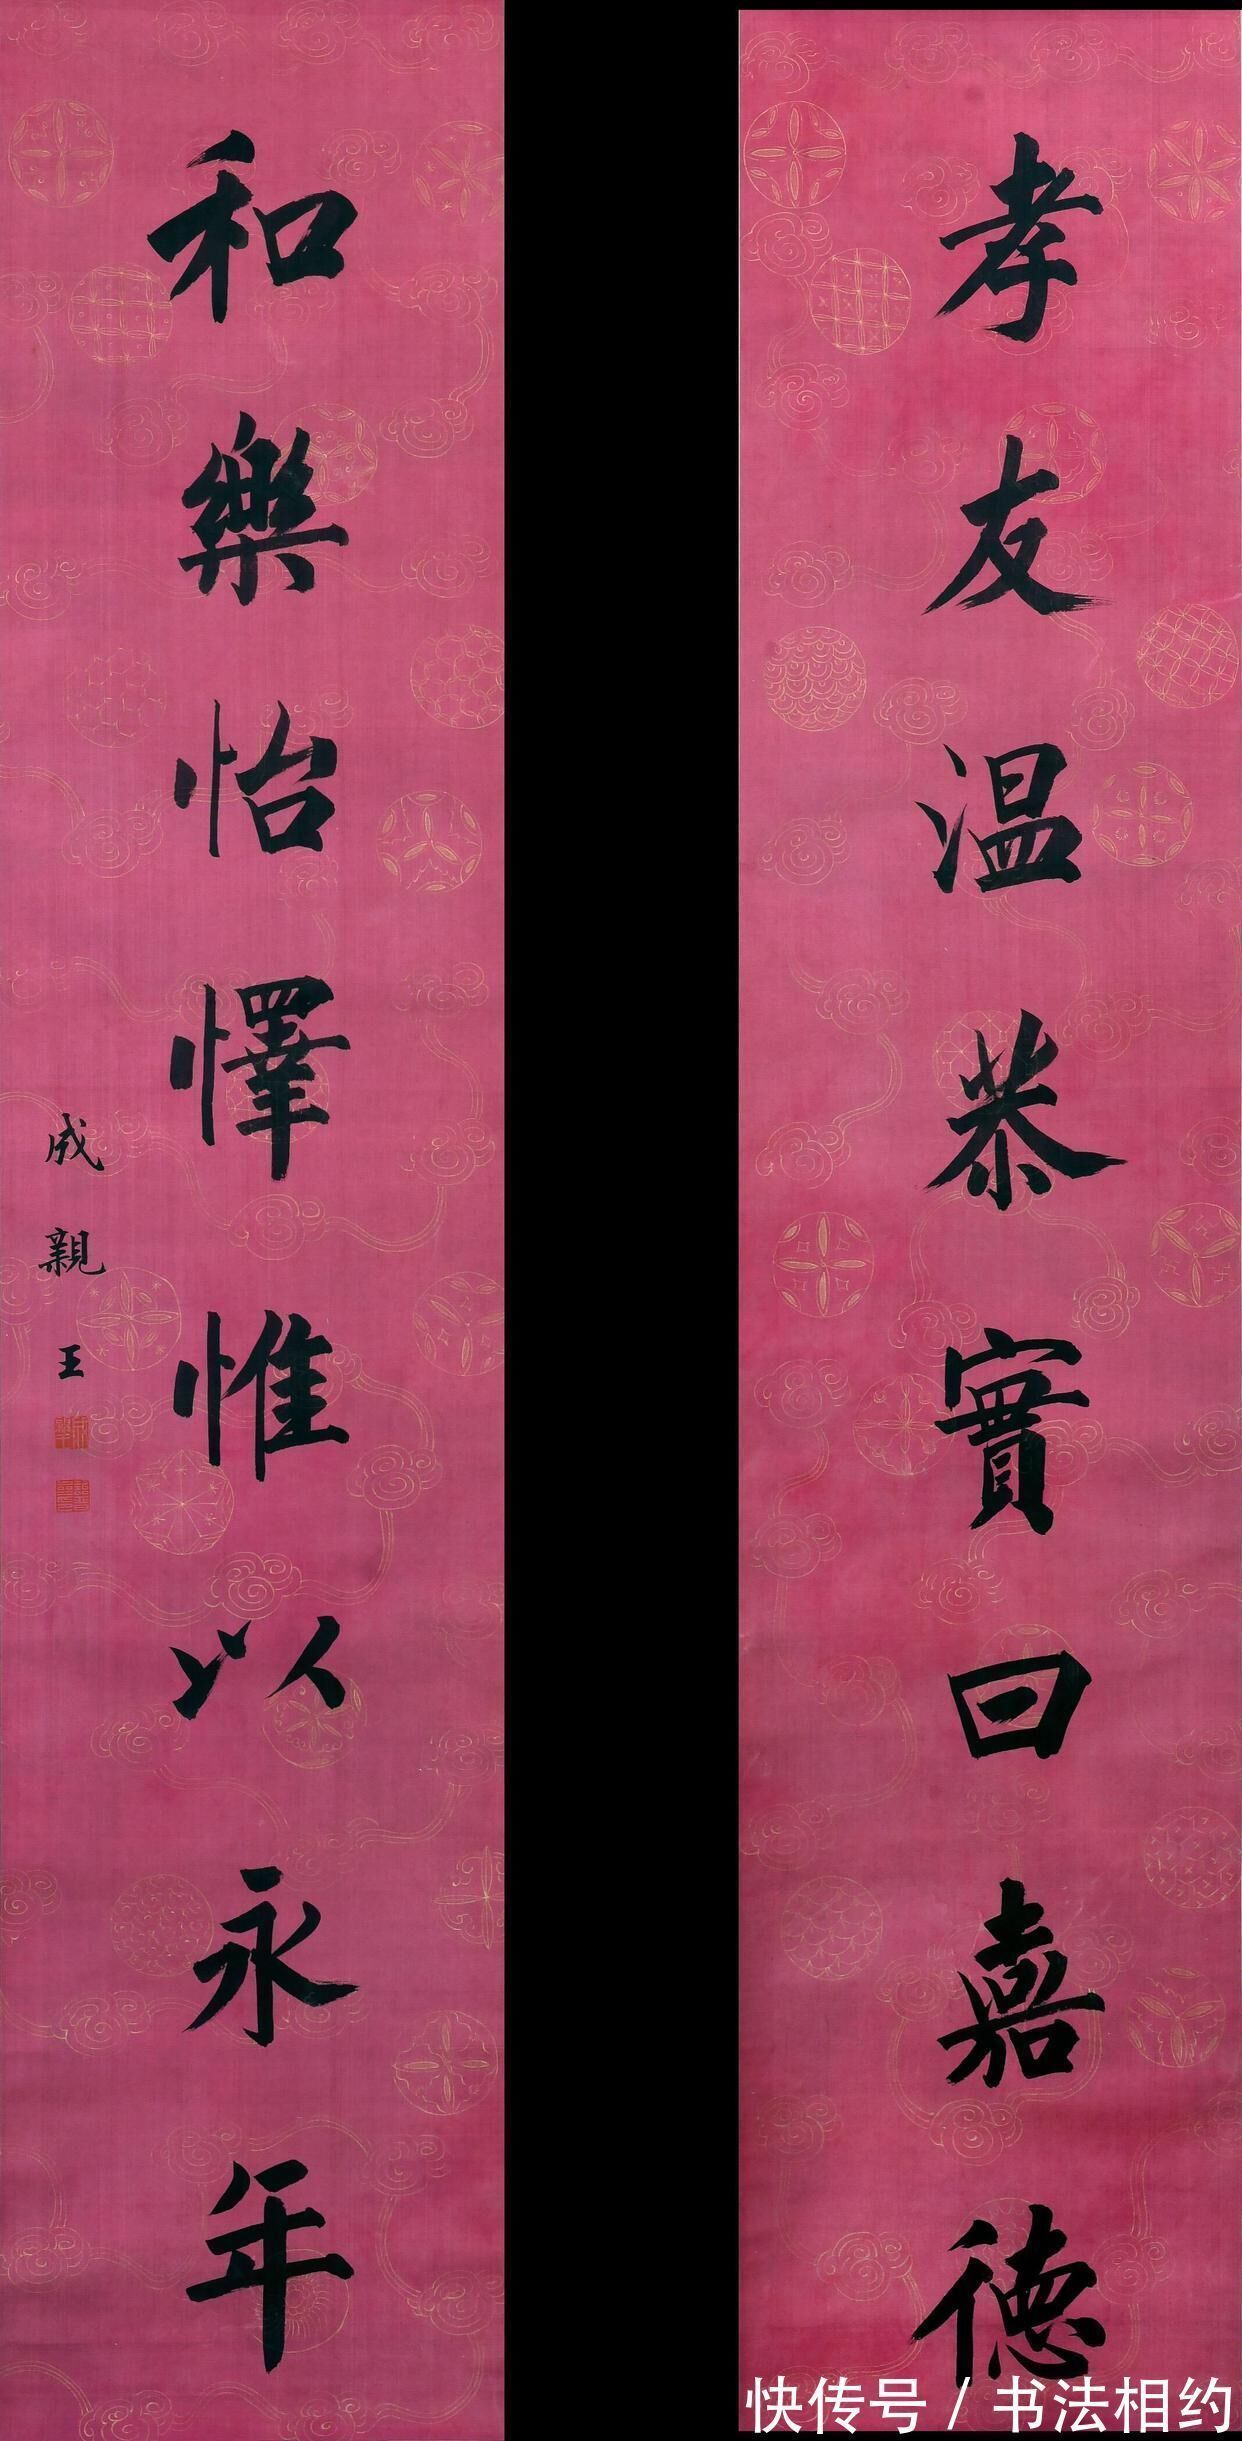 孝友温恭實曰嘉德
和樂怡懌惟以永年
成親王
快传号/书法相约